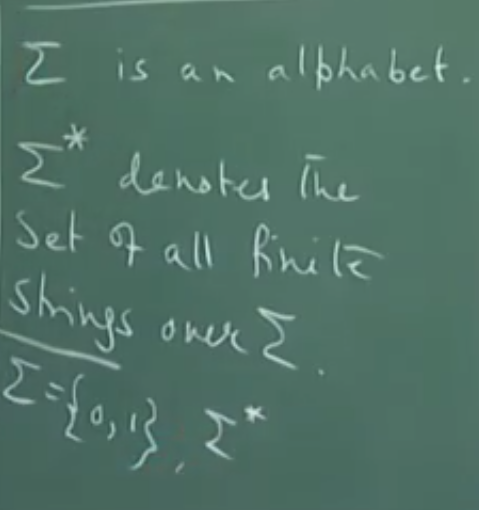 Σ is an alphabet.
Σ* denotes the
Set of all finite
strings over Σ.
Σ={0,1}, Σ*